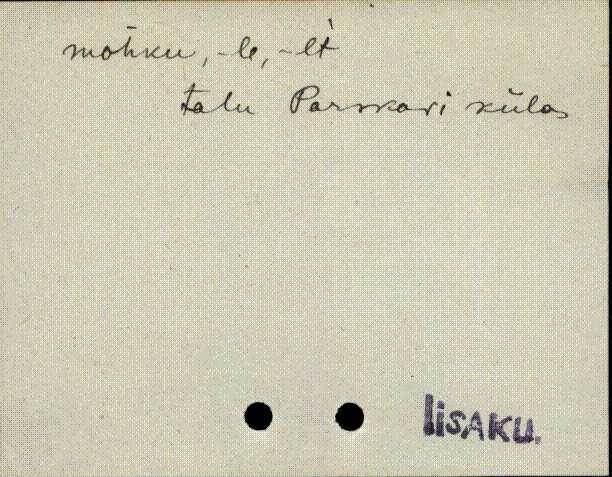 mohku, -le, -lt
talu Parskari külas
IisAKU.